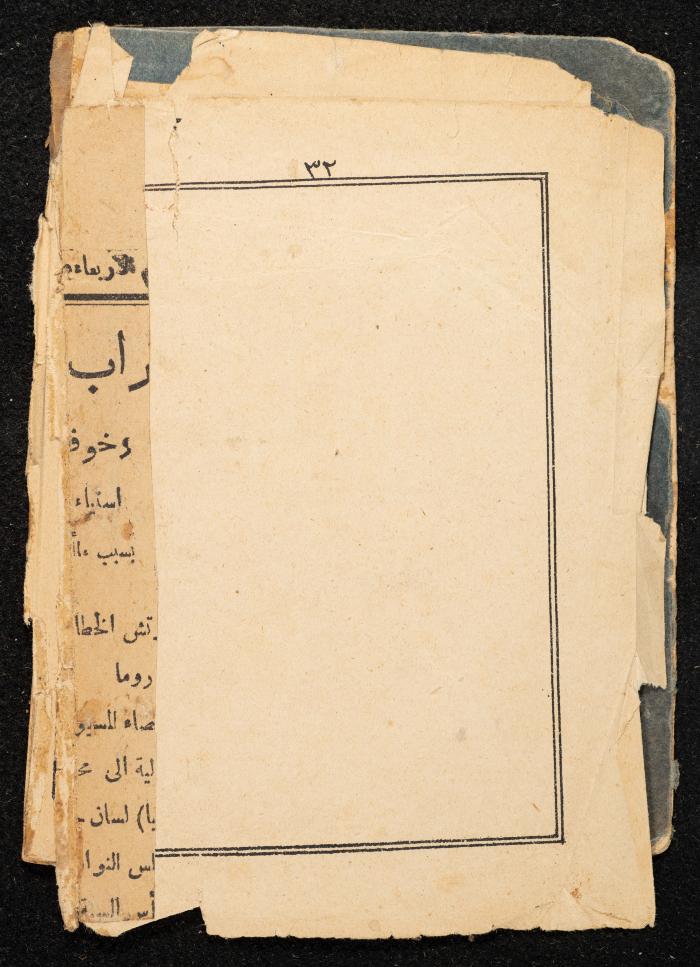 ٣٢
الاربعاء
راب
ءخوف
استياء
بسبب
تش الخطا
روما
ضاء المسيو
لية الى
يا) لسان
س النوا
أس